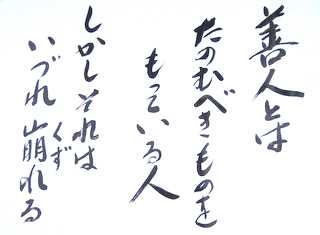 善人とは
たのむべきものを
もっている人
しかしそれは
いづれ崩れる
くず